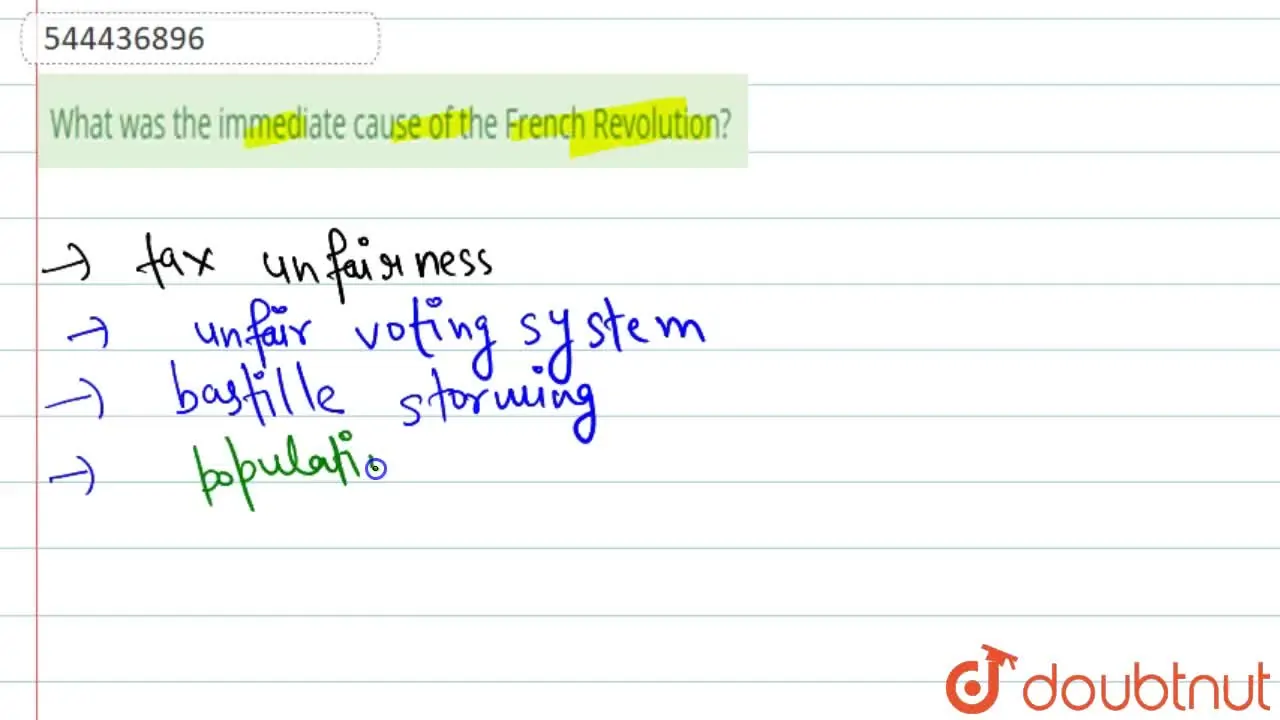 544436896
What was the immediate cause of the French Revolution?
→ tax unfairness
→ unfair voting system
→ bastille storming
→ populati
doubtnut